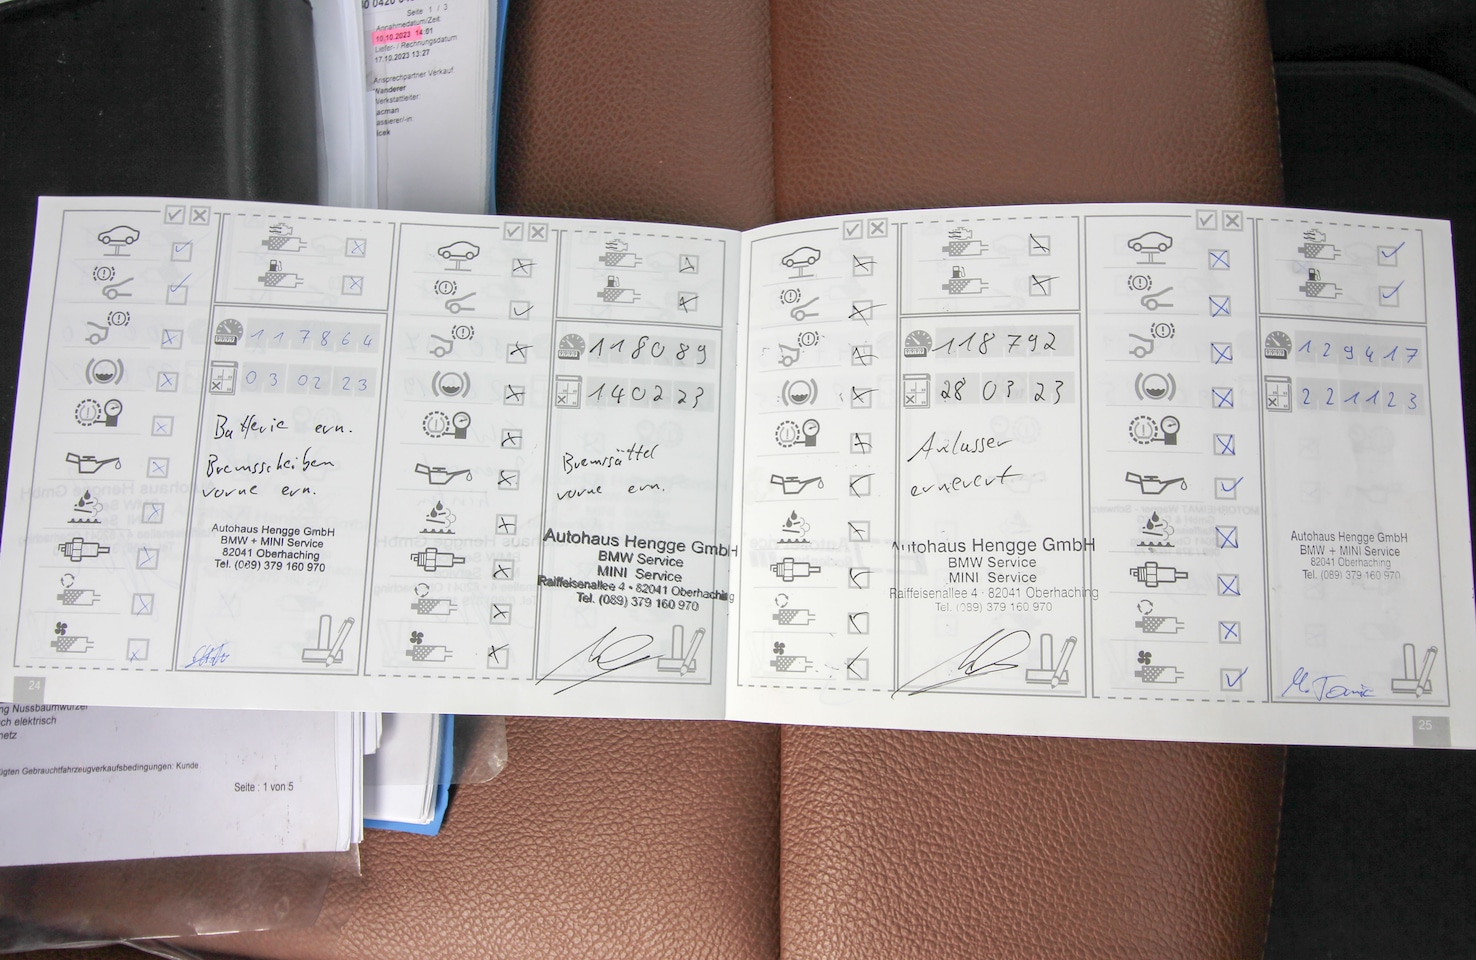 Seite 1 / 3
Annahmedatum/Zeit:
10.10.2023 14:01
Liefer- / Rechnungsdatum
17.10.2023 13:27
Ansprechpartner Verkauf
Wanderer
Werkstattleiter
117864
03 02 23
Batterie ern.
Bremsscheiben
vorne ern.
Autohaus Hengge GmbH
BMW + MINI Service
82041 Oberhaching
Tel. (089) 379 160 970
24
118089
140223
Bremssättel
vorne ern.
Autohaus Hengge GmbH
BMW Service
MINI Service
Raiffeisenallee 4 · 82041 Oberhaching
Tel. (089) 379 160 970
118792
28 03 23
Anlasser
erneuert
Autohaus Hengge GmbH
BMW Service
MINI Service
Raiffeisenallee 4 · 82041 Oberhaching
Tel. (089) 379 160 970
129417
221123
Autohaus Hengge GmbH
BMW + MINI Service
82041 Oberhaching
Tel. (089) 379 160 970
25
ng Nussbaumwurzel
ch elektrisch
netz
igten Gebrauchtfahrzeugverkaufsbedingungen: Kunde
Seite : 1 von 5